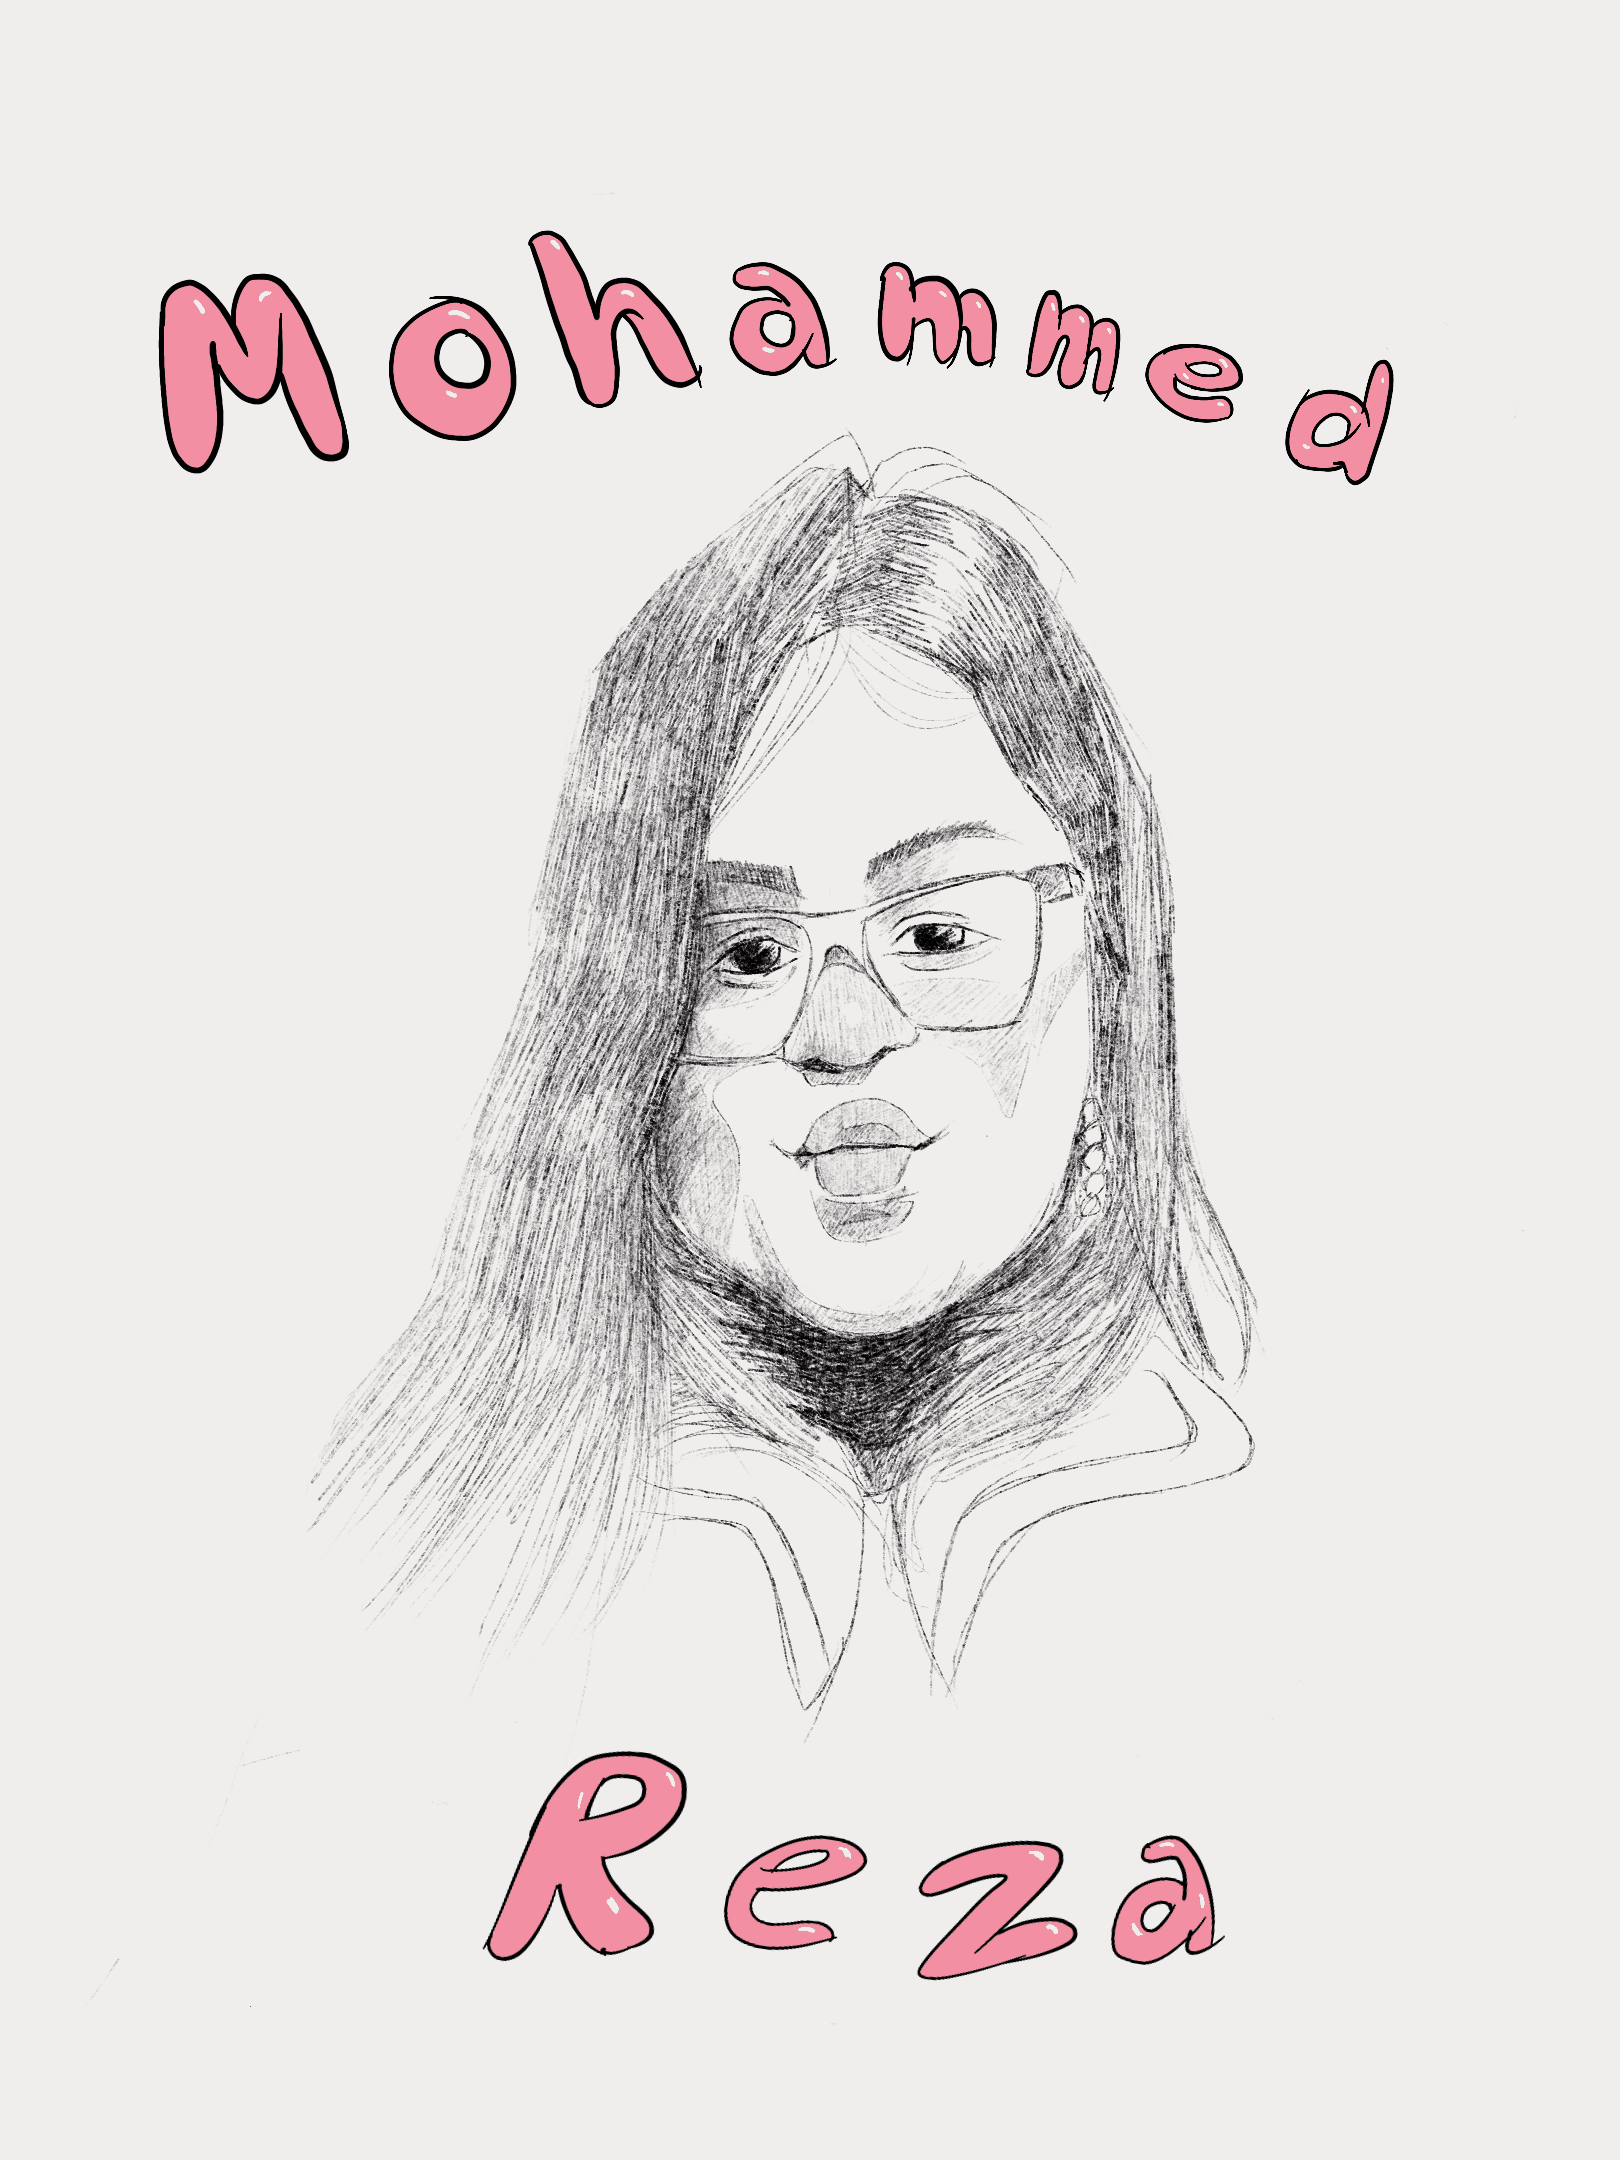 Mohammed
Reza